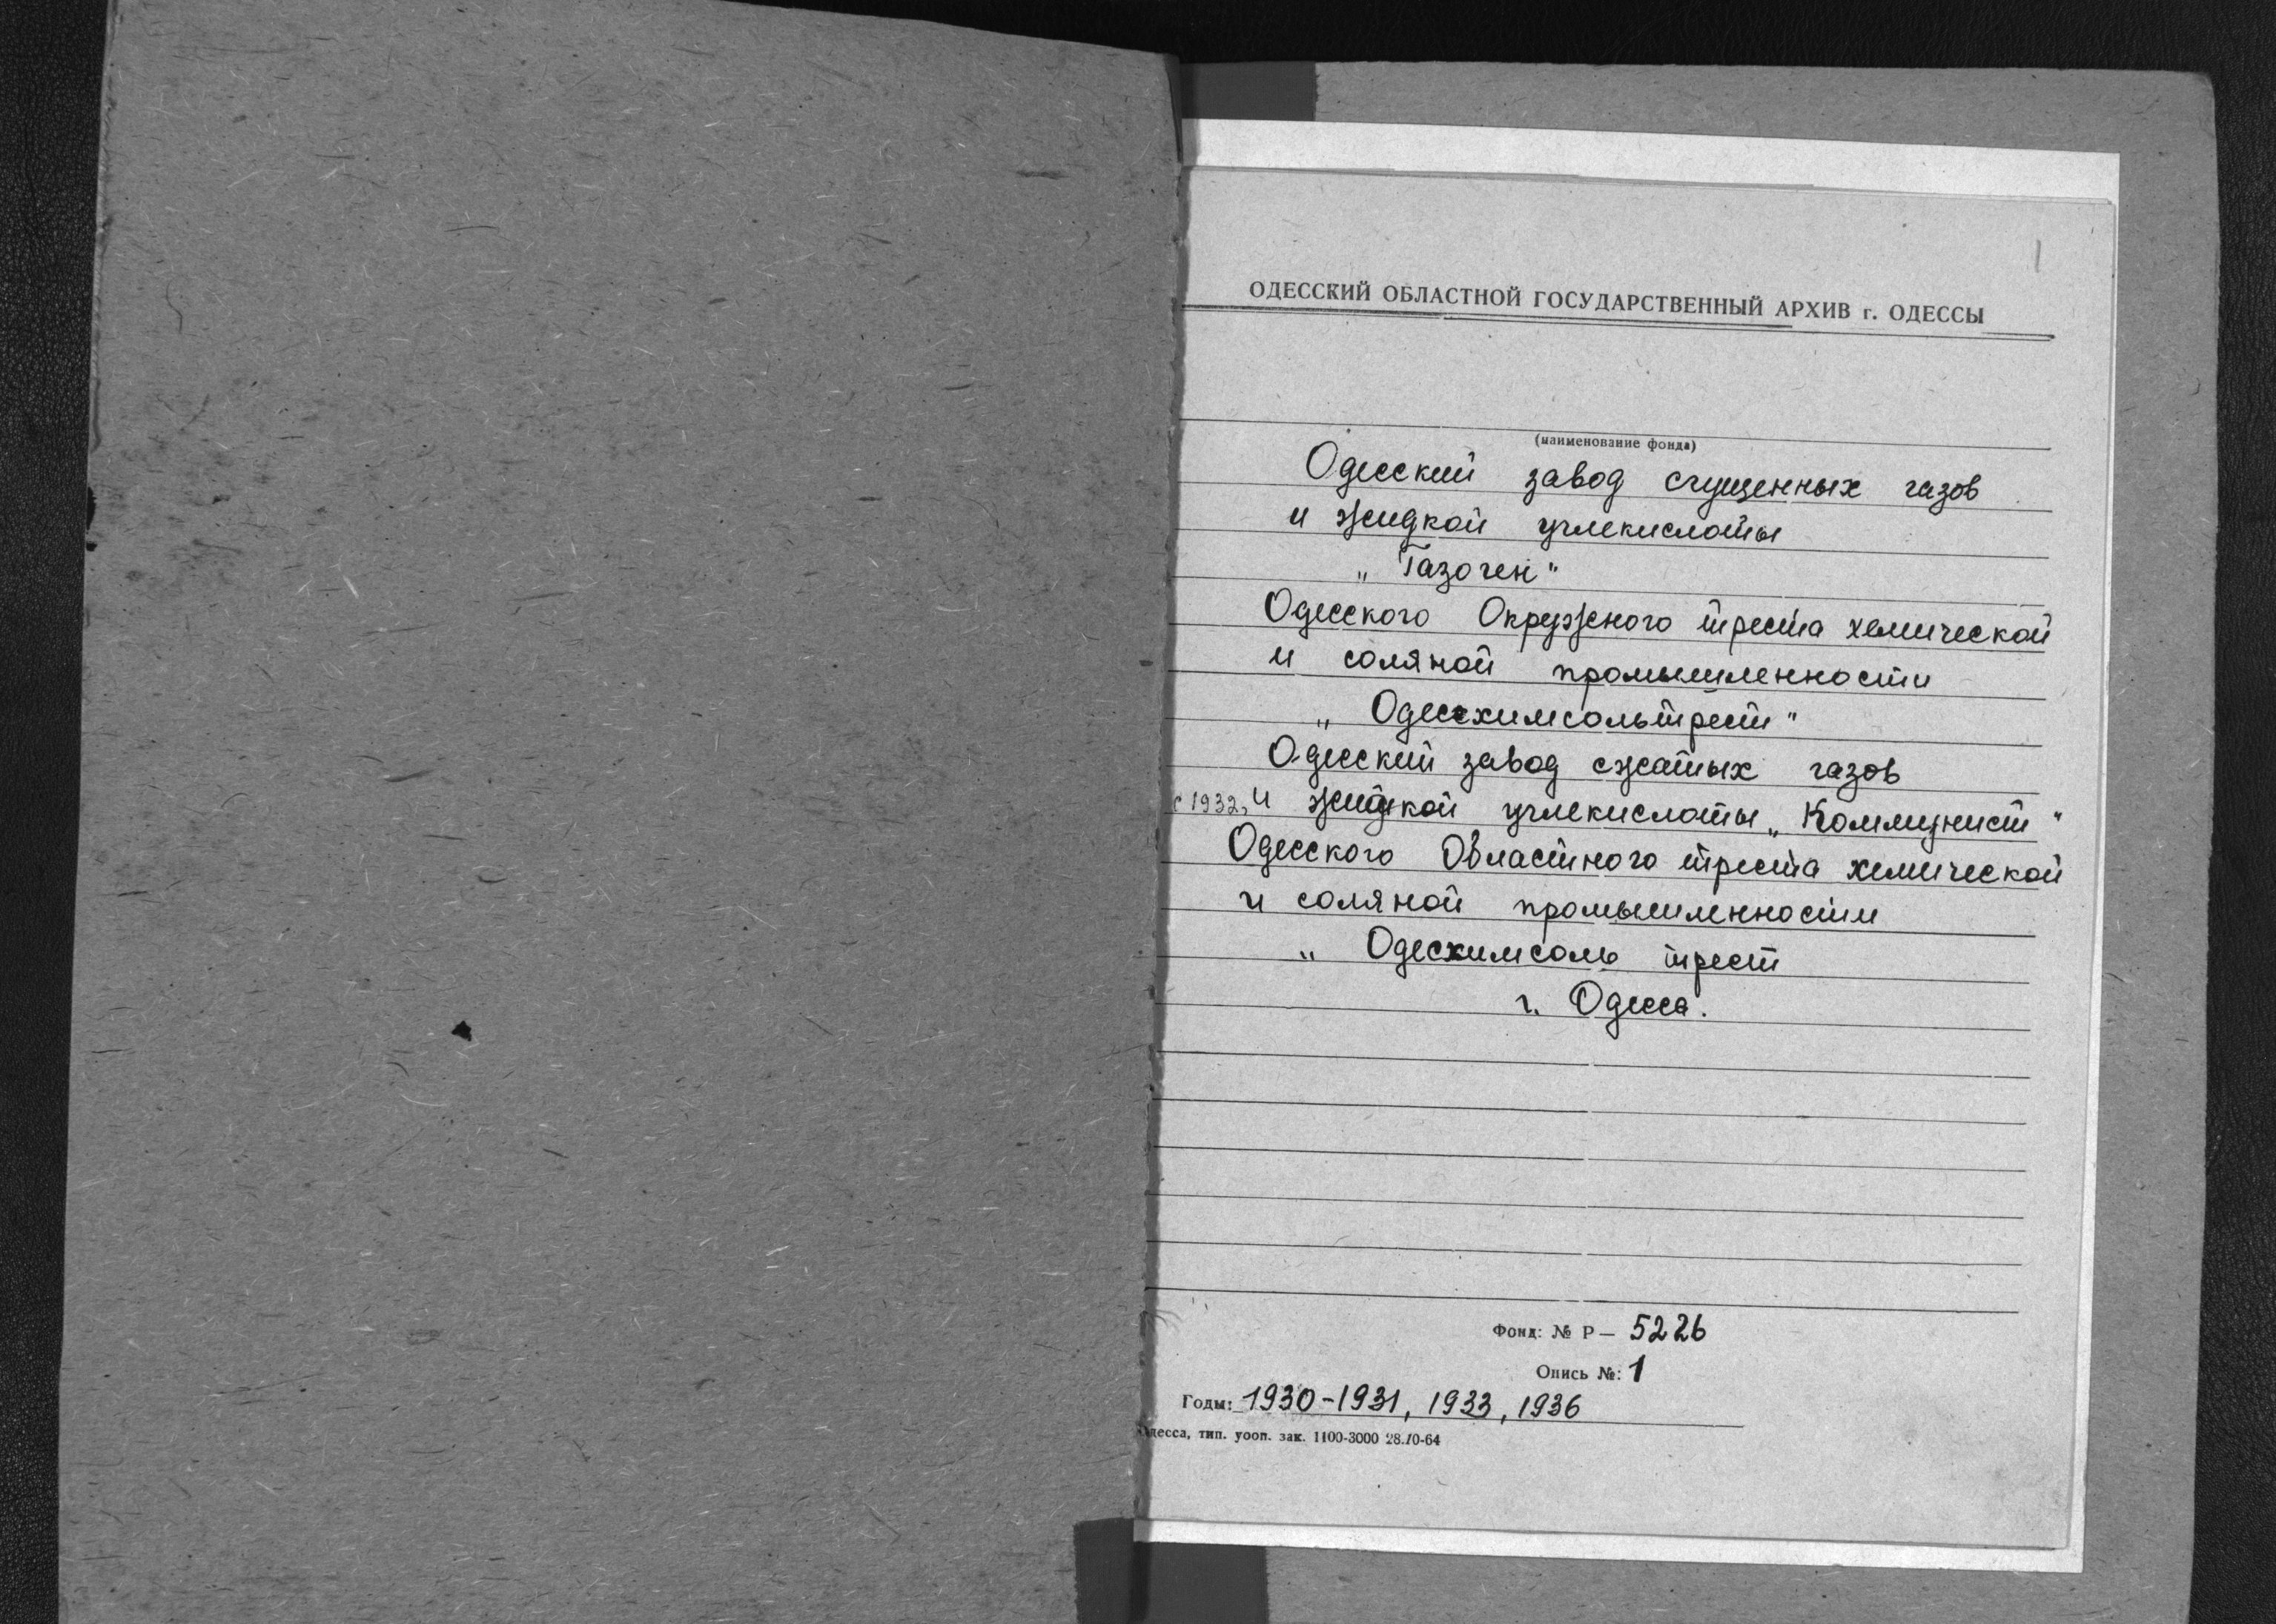 1
ОДЕССКИЙ ОБЛАСТНОЙ ГОСУДАРСТВЕННЫЙ АРХИВ г. ОДЕССЫ
(наименование фонда)
Одесский завод сгущенных газов
и жидкой углекислоты
„Газоген"
Одесского Окружного треста химической
и соляной промышленности
„Одесхимсольтрест"
Одесский завод сжатых газов
с 1932, и жидкой углекислоты „Коммунист"
Одесского Областного треста химической
и соляной промышленности
„Одесхимсоль трест
г. Одесса.
Фонд: № Р— 5226
Опись №: 1
Годы: 1930-1931, 1933, 1936
Одесса, тип. уооп. зак. 1100-3000 28.10-64